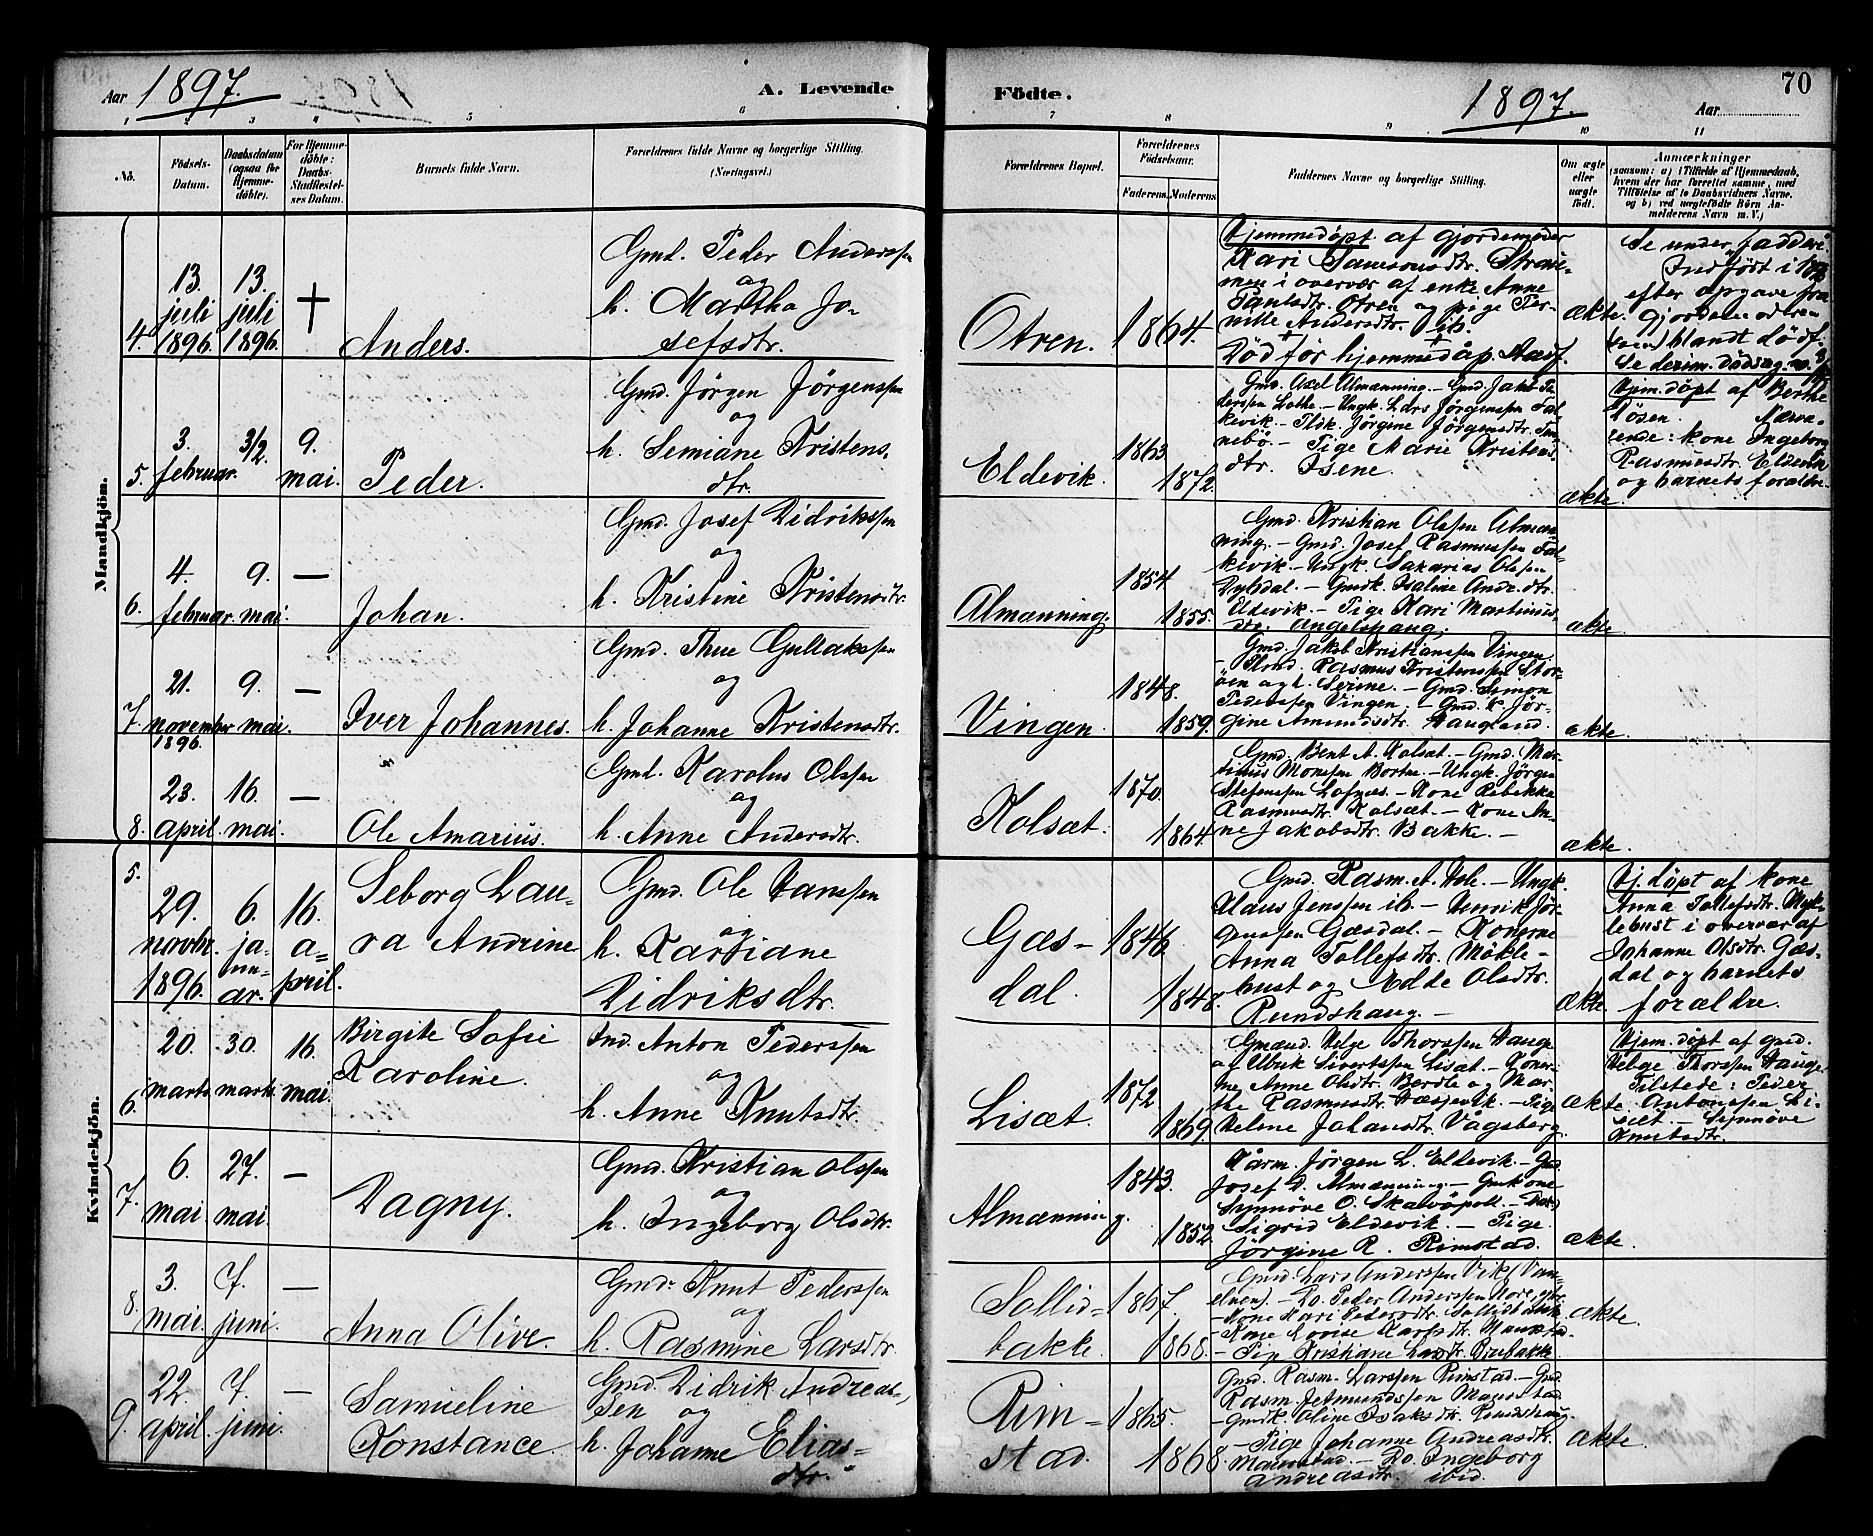 Aar 1897.
A. Levende
Födte.
1897.
Aar
70
1 2 3 4 5 6 7 8 9 10 11
No.
Födsels-
Datum.
Daabsdatum
(ogsaa for
Hjemme-
döbte).
For Hjemme-
döbte:
Daabs-
Stadfæstel-
ses Datum.
Barnets fulde Navn.
Forældrenes fulde Navne og borgerlige Stilling.
(Næringsvei.)
Forældrenes Bopæl.
Forældrenes
Födselsaar.
Faderens.
Moderens.
Faddernes Navne og borgerlige Stilling.
Om ægte
eller
uægte
födt.
Anmærkninger
(saasom: a) i Tilfælde af Hjemmedaab,
hvem der har forrettet samme, med
Tilföielse af to Daabsvidners Navne.
og b) ved uægtefödte Börn An-
melderens Navn m. V.)
Mandkjön.
4.
13.
juli
1896.
13.
juli
1896.
†
Anders.
Gmd. Peder Anderssen
og
h. Martha Jo-
sefsdtr.
Otren.
1864.
Hjemmedöpt af gjordemoder
Kari Samsonsdtr. Strau-
men i overvær af enke Anne
Otren og pige Per-
nille Andersdtr. ib.
Död för hjemmedåp.
ækte.
Se under faddere
Indfört i
efter opgave fra
gjordem.
blandt dödf.
Se
5.
3.
februar.
3/2
9.
mai.
Peder.
Gmd. Jörgen Jörgenssen
og
h. Semiane Kristens.
dtr.
Eldevik.
1863
1872.
Gmd. Axel Almenning. - Gmd. Jakob Pe-
derssen Lothe. - Ungk. Lars Jörgenssen Fal-
kevik. - Jörgine Jörgensdtr.
nebö. - Pige Marie Kristens
dtr. Isene.
ækte.
Hjem. döpt af Berthe
Tösen. Nærva-
rende: kone Ingeborg
Rasmusdtr. Eldevik
og barnets forældre.
6.
4.
februar.
9.
mai.
—
Johan.
Gmd. Josef Didrikssen
og
h. Kristine Kristensdtr.
Almenning.
1854
1855.
Gmd. Kristian Olssen Almen-
ning. - Gmd. Josef Rasmussen Fal-
kevik. - Ungk. Sakarias Olsen
- Gmdk. Andr. dtr.
Eldevik. - Pige Kari Martinus
dtr. Angelshaug.
ækte.
7.
21.
november
1896.
9.
mai.
—
Iver Johannes.
Gmd. Thue Gullakssen
og
h. Johanne Kristensdtr.
Vingen.
1848.
1859.
Gmd. Jakob Kristianssen Vingen
- Rasmus Kristenssen Stor-
öen og h. Serine. - Gmd. Simon
Pederssen Vingen. - Gmd. k. Jör-
gine Amundsdtr. Haugland.
ækte.
8.
23.
april.
16.
mai.
—
Ole Amarius.
Gmd. Karolus Olssen
og
h. Anne Andersdtr.
Kolsæt.
1870.
1864.
Gmd. Bent A. Kolsæt. - Gmd. Mar-
tinus Monssen Bortne. - Ungk. Jörgen
Stefenssen Lofnæs. - Kone Rebekka
Rasmusdtr. Kolsæt. - Kone An-
ne Jakobsdtr. Bakke. -
ækte.
Kvindekjön.
5.
29.
novbr.
1896.
6.
ja-
nu-
ar.
16.
a-
pril.
Seborg Lau-
ra Andrine
Gmd. Ole Hanssen
og
h. Karsiane
Didriksdtr.
Gæs-
dal.
1846.
1848.
Gmd. Rasm. A. Hole. - Ungk.
Klaus Jenssen ib. - Henrik Jör-
genssen Gæsdal. - Konerne
Anna Tollefsdtr. Mökle-
bust og Olsdtr.
Rundshaug. -
ækte.
Hj. döpt af kone
Anna Tollefsdtr. Myk-
lebust i overvær af
Johanne Olsdtr. Gæs-
dal og barnets
forældre.
6.
20.
marts.
30.
marts.
16.
mai.
Birgite Sofie
Karoline.
Ind. Anton Pederssen
og
h. Anne Knutsdtr.
Lisæt.
1872.
1869.
Gmænd. Helge Thorssen Hauge
og Ulrik Sivertssen Lisæt. - Koner-
ne Anne Olsdtr. Berdle og Mar-
the Rasmusdtr. - Pige
Helene Johansdtr. Vågsberg.
ækte.
Hjem. döpt af gmd.
Helge Thorssen Hauge.
Tilstede: Peder
Antonssen Li-
sæt. - Synnöve
Knutsdtr.
7.
6.
mai.
27.
mai.
—
Dagny.
Gmd. Kristian Olssen
og
h. Ingeborg Olsdtr.
Almenning.
1843.
1852.
Kårm. Jörgen L. Eldevik. - Gmd.
Josef D. Almenning. - Gmkone
Synnöve O. Skatöpoll. -
Sigrid Eldevik. - Pige
Jörgine R. Rimstad.
ækte.
8.
3.
mai.
7.
juni.
—
Anna Olive.
Gmd. Knut Pederssen
og
h. Rasmine Larsdtr.
Sollid-
bakke.
1867.
1868.
Gmd. Lars Anderssen Vik
- Do. Peder Anderssen
- Kone Kari Pedersdtr. Sollidbakke
- Kone Lovise
- Pige Kristiane Larsdtr.
ækte.
9.
22.
april.
7.
juni.
—
Samueline
Konstance.
Gmd. Didrik Andreas-
sen og
h. Johanne Elias-
dtr.
Rim-
stad.
1865.
1868.
Gmd. Rasm. Larssen Rimstad. - Gmd.
Rasm. Maurstad
- Gmdk. Oline Isaksdtr. Rundshaug.
- Pige Johanne Andreasdtr.
Maurstad. - Do. Ingeborg
Andreasdtr. ibid.
ækte.